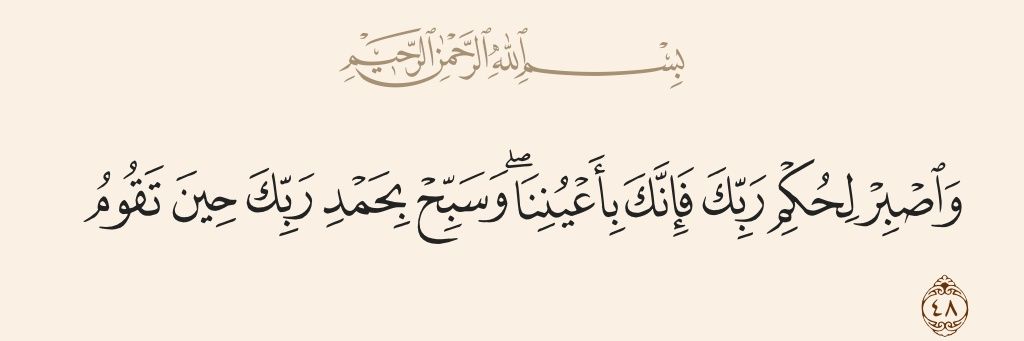 بِسْمِ ٱللَّهِ ٱلرَّحْمَٰنِ ٱلرَّحِيمِ
وَٱصْبِرْ لِحُكْمِ رَبِّكَ فَإِنَّكَ بِأَعْيُنِنَا ۖ وَسَبِّحْ بِحَمْدِ رَبِّكَ حِينَ تَقُومُ
٤٨